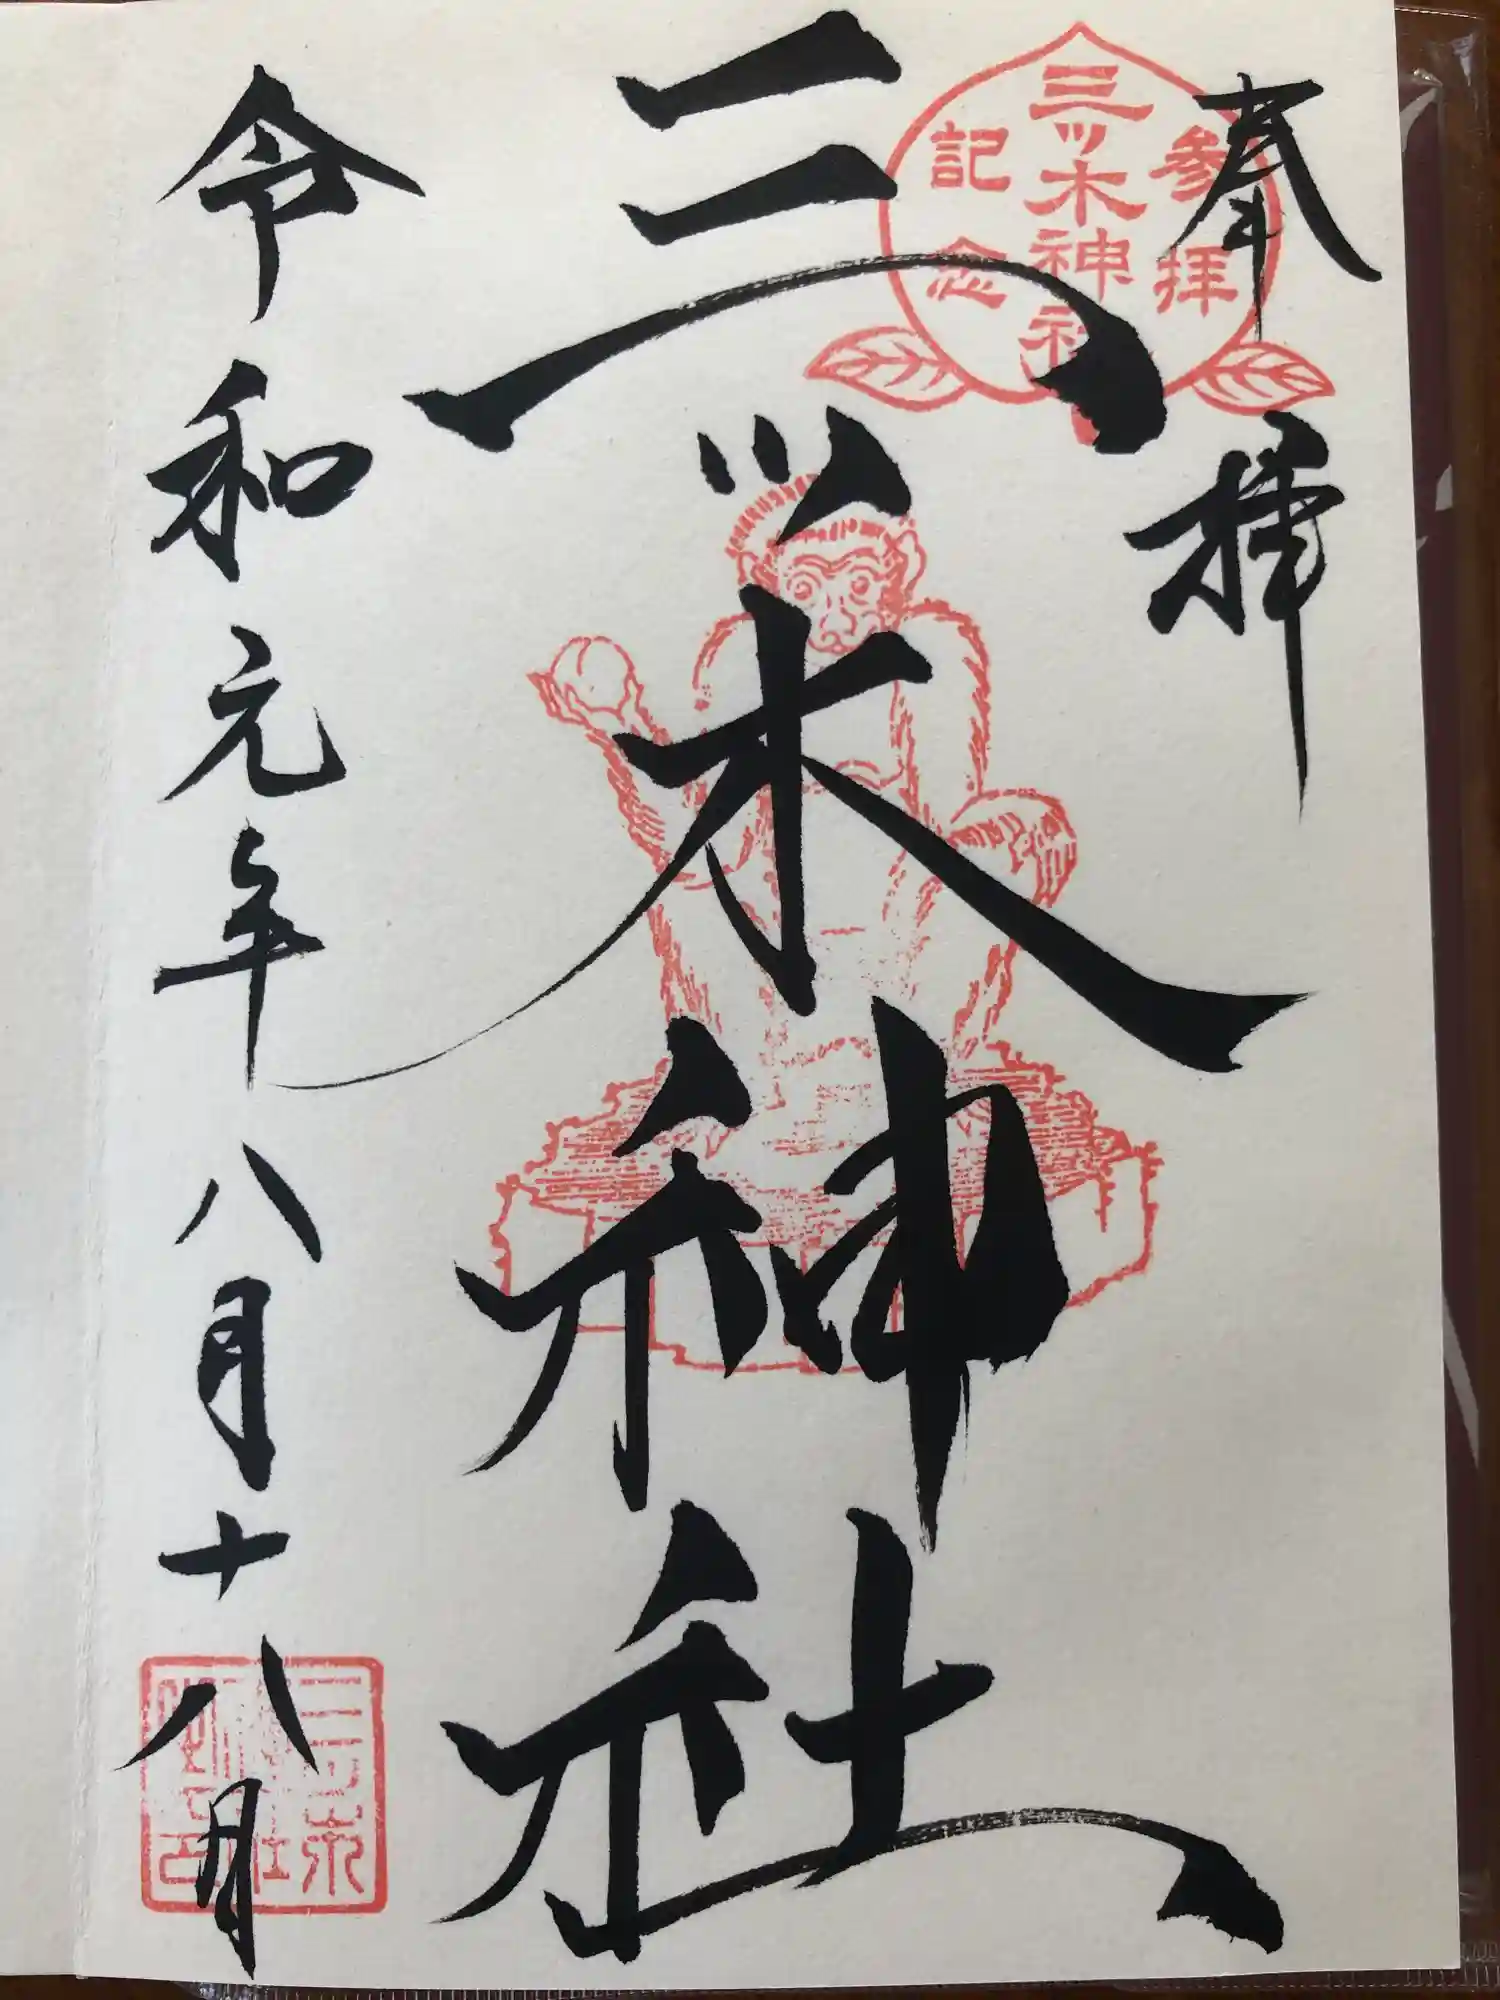 奉拝
参拝
三ツ木神社
記念
三ツ木神社
令和元年八月十八月